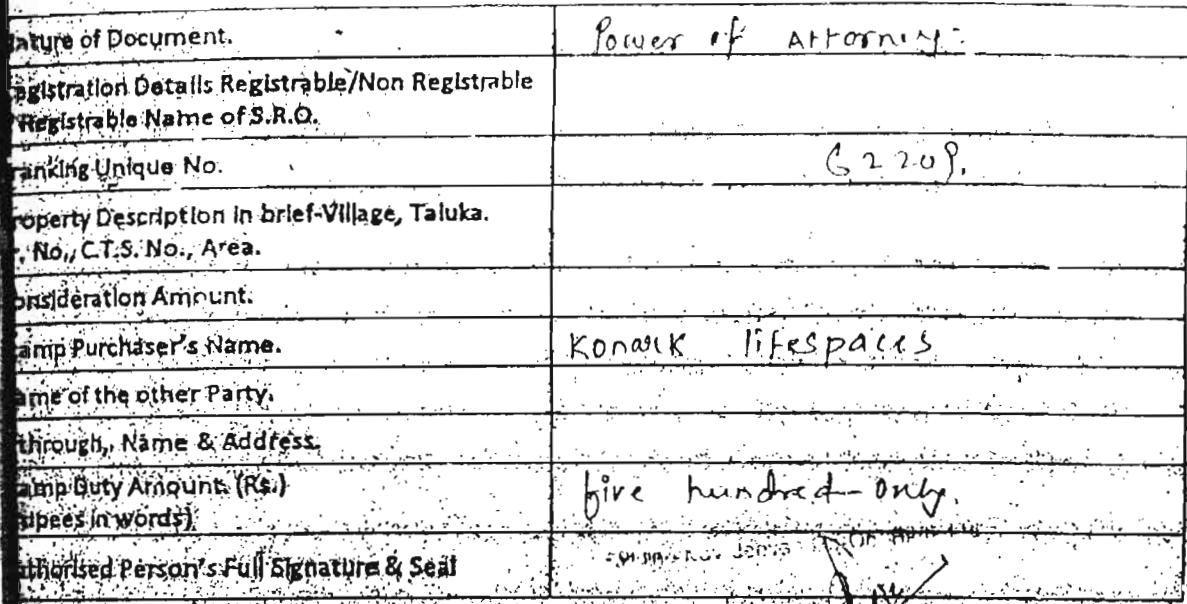 ature of Document. Power of Attorney
egistration Details Registrable/Non Registrable
Registrable Name of S.R.O.
ranking Unique No. 62209.
roperty Description in brief-Village, Taluka.
r. No., C.T.S. No., Area.
onsideration Amount.
tamp Purchaser's Name. Konark lifespaces
ame of the other Party.
through, Name & Address.
tamp Duty Amount. (Rs.) five hundred only.
upees in words)
uthorised Person's Full Signature & Seal